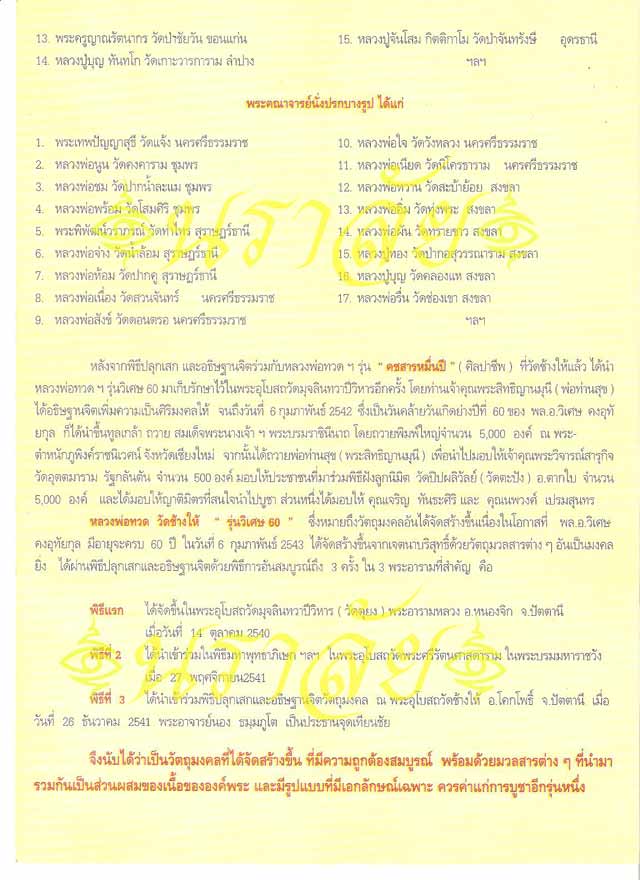 13. พระครูญาณรัตนากร วัดป่าชัยวัน ขอนแก่น
14. หลวงปู่บุญ ทันทโก วัดเกาะวารการาม ลำปาง
15. หลวงปู่จันโสม กิตติกาโม วัดป่าจันทรังษี อุดรธานี
ฯลฯ
พระคณาจารย์นั่งปรกบางรูป ได้แก่
1. พระเทพปัญญาสุธี วัดแจ้ง นครศรีธรรมราช
2. หลวงพ่อนูน วัดคงคาราม ชุมพร
3. หลวงพ่อชม วัดปากน้ำละแม ชุมพร
4. หลวงพ่อพร้อม วัดโสมศิริ ชุมพร
5. พระพิพัฒน์วราภรณ์ วัดท่าไทร สุราษฎร์ธานี
6. หลวงพ่อจ่าง วัดน้ำล้อม สุราษฎร์ธานี
7. หลวงพ่อห้อม วัดปากคู สุราษฎร์ธานี
8. หลวงพ่อเนื่อง วัดสวนจันทร์ นครศรีธรรมราช
9. หลวงพ่อสังข์ วัดดอนตรอ นครศรีธรรมราช
10. หลวงพ่อใจ วัดวังหลวง นครศรีธรรมราช
11. หลวงพ่อเนียด วัดนิโครธาราม นครศรีธรรมราช
12. หลวงพ่อหวาน วัดสะบ้าย้อย สงขลา
13. หลวงพ่ออิ่ม วัดทุ่งพระ สงขลา
14. หลวงพ่อผัน วัดทรายขาว สงขลา
15. หลวงปู่ทอง วัดป่ากอสุวรรณาราม สงขลา
16. หลวงปู่บุญ วัดคลองแห สงขลา
17. หลวงพ่อรื่น วัดช่องเขา สงขลา
ฯลฯ
หลังจากพิธีปลุกเสก และอธิษฐานจิตร่วมกับหลวงพ่อทวด ฯ รุ่น " คชสารหมื่นปี " ( ศิลปาชีพ ) ที่วัดช้างให้แล้ว ได้นำ
หลวงพ่อทวด ฯ รุ่นวิเศษ 60 มาเก็บรักษาไว้ในพระอุโบสถวัดมุจลินทวาปีวิหารอีกครั้ง โดยท่านเจ้าคุณพระสิทธิญานมุนี ( พ่อท่านสุข )
ได้อธิษฐานจิตเพิ่มความเป็นศิริมงคลให้ จนถึงวันที่ 6 กุมภาพันธ์ 2542 ซึ่งเป็นวันคล้ายวันเกิดย่างปีที่ 60 ของ พล.อ.วิเศษ คงอุทั
ยกุล ก็ได้นำขึ้นทูลเกล้า ถวาย สมเด็จพระนางเจ้า ฯ พระบรมราชินีนาถ โดยถวายพิมพ์ใหญ่จำนวน 5,000 องค์ ณ พระ-
ตำหนักภูพิงค์ราชนิเวศน์ จังหวัดเชียงใหม่ จากนั้นได้ถวายพ่อท่านสุข ( พระสิทธิญานมุนี ) เพื่อนำไปมอบให้เจ้าคุณพระวิจารณ์สารุกิจ
วัดอุตตมาราม รัฐกลันตัน จำนวน 500 องค์ มอบให้ประชาชนที่มาร่วมพิธีฝังลูกนิมิต วัดปิปผลิวัลย์ ( วัดตะปัง ) อ.ตากใบ จำนวน
5,000 องค์ และได้มอบให้ญาติมิตรที่สนใจนำไปบูชา ส่วนหนึ่งได้มอบให้ คุณเจริญ ทันธะศิริ และ คุณนพวงศ์ เปรมสุนทร
หลวงพ่อทวด วัดช้างให้ " รุ่นวิเศษ 60 " ซึ่งหมายถึงวัตถุมงคลอันได้จัดสร้างขึ้นเนื่องในโอกาสที่ พล.อ.วิเศษ
คงอุทัยกุล มีอายุจะครบ 60 ปี ในวันที่ 6 กุมภาพันธ์ 2543 ได้จัดสร้างขึ้นจากเจตนาบริสุทธิ์ด้วยวัตถุมวลสารต่าง ๆ อันเป็นมงคล
ยิ่ง ได้ผ่านพิธีปลุกเสกและอธิษฐานจิตด้วยพิธีการอันสมบูรณ์ถึง 3 ครั้ง ใน 3 พระอารามที่สำคัญ คือ
พิธีแรก ได้จัดขึ้นในพระอุโบสถวัดมุจลินทวาปีวิหาร ( วัดตุยง ) พระอารามหลวง อ.หนองจิก จ.ปัตตานี
เมื่อวันที่ 14 ตุลาคม 2540
พิธีที่ 2 ได้นำเข้าร่วมในพิธีมหาพุทธาภิเษก ฯลฯ ในพระอุโบสถวัดพระศรีรัตนศาสดาราม ในพระบรมมหาราชวัง
เมื่อ 27 พฤศจิกายน2541
พิธีที่ 3 ได้นำเข้าร่วมพิธีปลุกเสกและอธิษฐานจิตวัตถุมงคล ณ พระอุโบสถวัดช้างให้ อ.โคกโพธิ์ จ.ปัตตานี เมื่อ
วันที่ 26 ธันวาคม 2541 พระอาจารย์นอง ธมฺมภูโต เป็นประธานจุดเทียนชัย
จึงนับได้ว่าเป็นวัตถุมงคลที่ได้จัดสร้างขึ้น ที่มีความถูกต้องสมบูรณ์ พร้อมด้วยมวลสารต่าง ๆ ที่นำมา
รวมกันเป็นส่วนผสมของเนื้อขององค์พระ และมีรูปแบบที่มีเอกลักษณ์เฉพาะ ควรค่าแก่การบูชาอีกรุ่นหนึ่ง
นราลัย
นราลัย